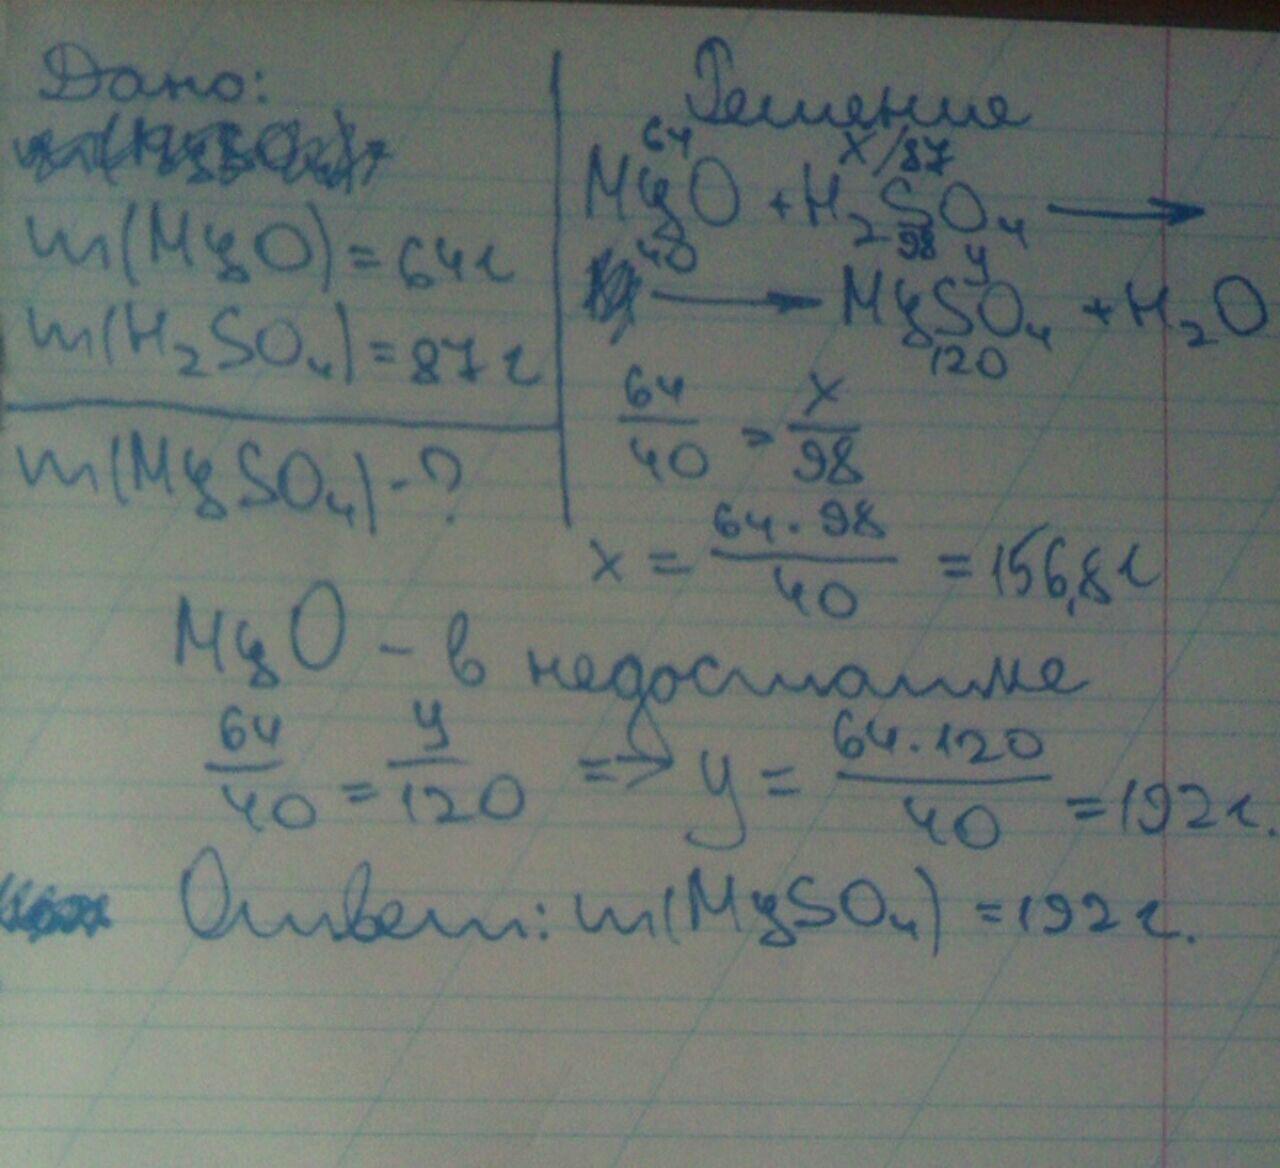 Дано:
m(MgO) = 64г
m(H₂SO₄) = 87г
m(MgSO₄) - ?
Решение
64 x/87
MgO + H₂SO₄ →
40 98 y
→ MgSO₄ + H₂O
120
64/40 = x/98
x = 64·98/40 = 156,8г
MgO - в недостатке
64/40 = y/120 => y = 64·120/40 = 192г.
Ответ: m(MgSO₄) = 192г.